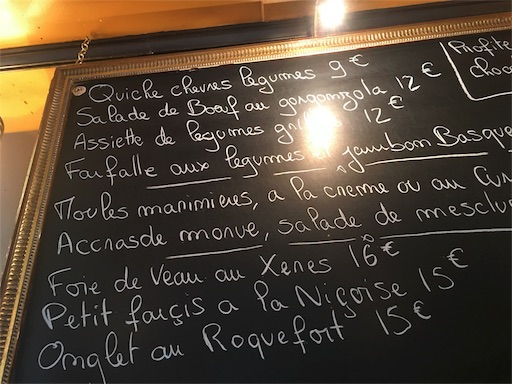 Quiche chevres legumes 9€
Salade de Bœuf au gorgonzola 12€
Assiette de legumes 12€
Farfalle aux legumes jambon Basque
Moules marinieres, a la creme ou au
Accrasde morue, salade de mesclu
Foie de Veau au Xeres 16€
Petit farçis a la Niçoise 15€
Onglet au Roquefort 15€
Profite
choc